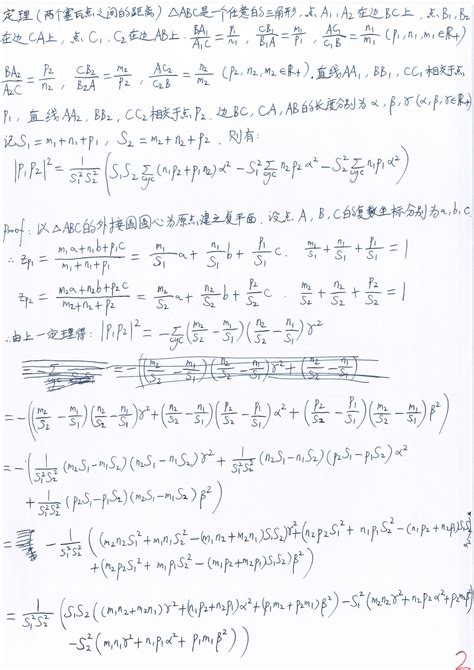 定理 (两个塞瓦点之间的距离) △ABC是一个任意的三角形. 点 A₁, A₂ 在边BC上, 点 B₁, B₂
在边CA上, 点 C₁, C₂ 在边AB上. BA₁/A₁C = p₁/n₁, CB₁/B₁A = m₁/p₁, AC₁/C₁B = n₁/m₁ (p₁,n₁,m₁∈R₊)
BA₂/A₂C = p₂/n₂, CB₂/B₂A = m₂/p₂, AC₂/C₂B = n₂/m₂ (p₂,n₂,m₂∈R₊). 直线AA₁, BB₁, CC₁ 相交于点
P₁, 直线 AA₂, BB₂, CC₂ 相交于点 P₂. 边BC, CA, AB的长度分别为 α, β, γ (α,β,γ∈R₊)
记 S₁ = m₁+n₁+p₁, S₂ = m₂+n₂+p₂. 则有:
|P₁P₂|² = 1/(S₁²S₂²) (S₁S₂ ∑cyc (n₁p₂+p₁n₂)α² − S₁² ∑cyc n₂p₂α² − S₂² ∑cyc n₁p₁α²)
Proof: 以△ABC的外接圆圆心为原点建立复平面. 设点 A, B, C的复数坐标分别为a,b,c.
∴ z_P₁ = (m₁a+n₁b+p₁c)/(m₁+n₁+p₁) = m₁/S₁ a + n₁/S₁ b + p₁/S₁ c. m₁/S₁ + n₁/S₁ + p₁/S₁ = 1
z_P₂ = (m₂a+n₂b+p₂c)/(m₂+n₂+p₂) = m₂/S₂ a + n₂/S₂ b + p₂/S₂ c. m₂/S₂ + n₂/S₂ + p₂/S₂ = 1
∴由上一定理得: |P₁P₂|² = −∑cyc (m₂/S₂ − m₁/S₁)(n₂/S₂ − n₁/S₁)γ²
= −((m₂/S₂ − m₁/S₁)(n₂/S₂ − n₁/S₁)γ² + (n₂/S₂ − n₁/S₁)(p₂/S₂ − p₁/S₁)α² + (p₂/S₂ − p₁/S₁)(m₂/S₂ − m₁/S₁)β²)
= −(1/(S₁²S₂²) (m₂S₁−m₁S₂)(n₂S₁−n₁S₂)γ² + 1/(S₁²S₂²) (n₂S₁−n₁S₂)(p₂S₁−p₁S₂)α²
+ 1/(S₁²S₂²) (p₂S₁−p₁S₂)(m₂S₁−m₁S₂)β²)
= − 1/(S₁²S₂²) ((m₂n₂S₁²+m₁n₁S₂²−(m₁n₂+m₂n₁)S₁S₂)γ²+(n₂p₂S₁²+n₁p₁S₂²−(n₁p₂+n₂p₁)S₁S₂)α²
+(m₂p₂S₁²+m₁p₁S₂²−(m₁p₂+m₂p₁)S₁S₂)β²)
= 1/(S₁²S₂²) (S₁S₂((m₁n₂+m₂n₁)γ²+(n₁p₂+n₂p₁)α²+(p₁m₂+p₂m₁)β²) −S₁²(m₂n₂γ²+n₂p₂α²+p₂m₂β²)
−S₂²(m₁n₁γ²+n₁p₁α²+p₁m₁β²))
2